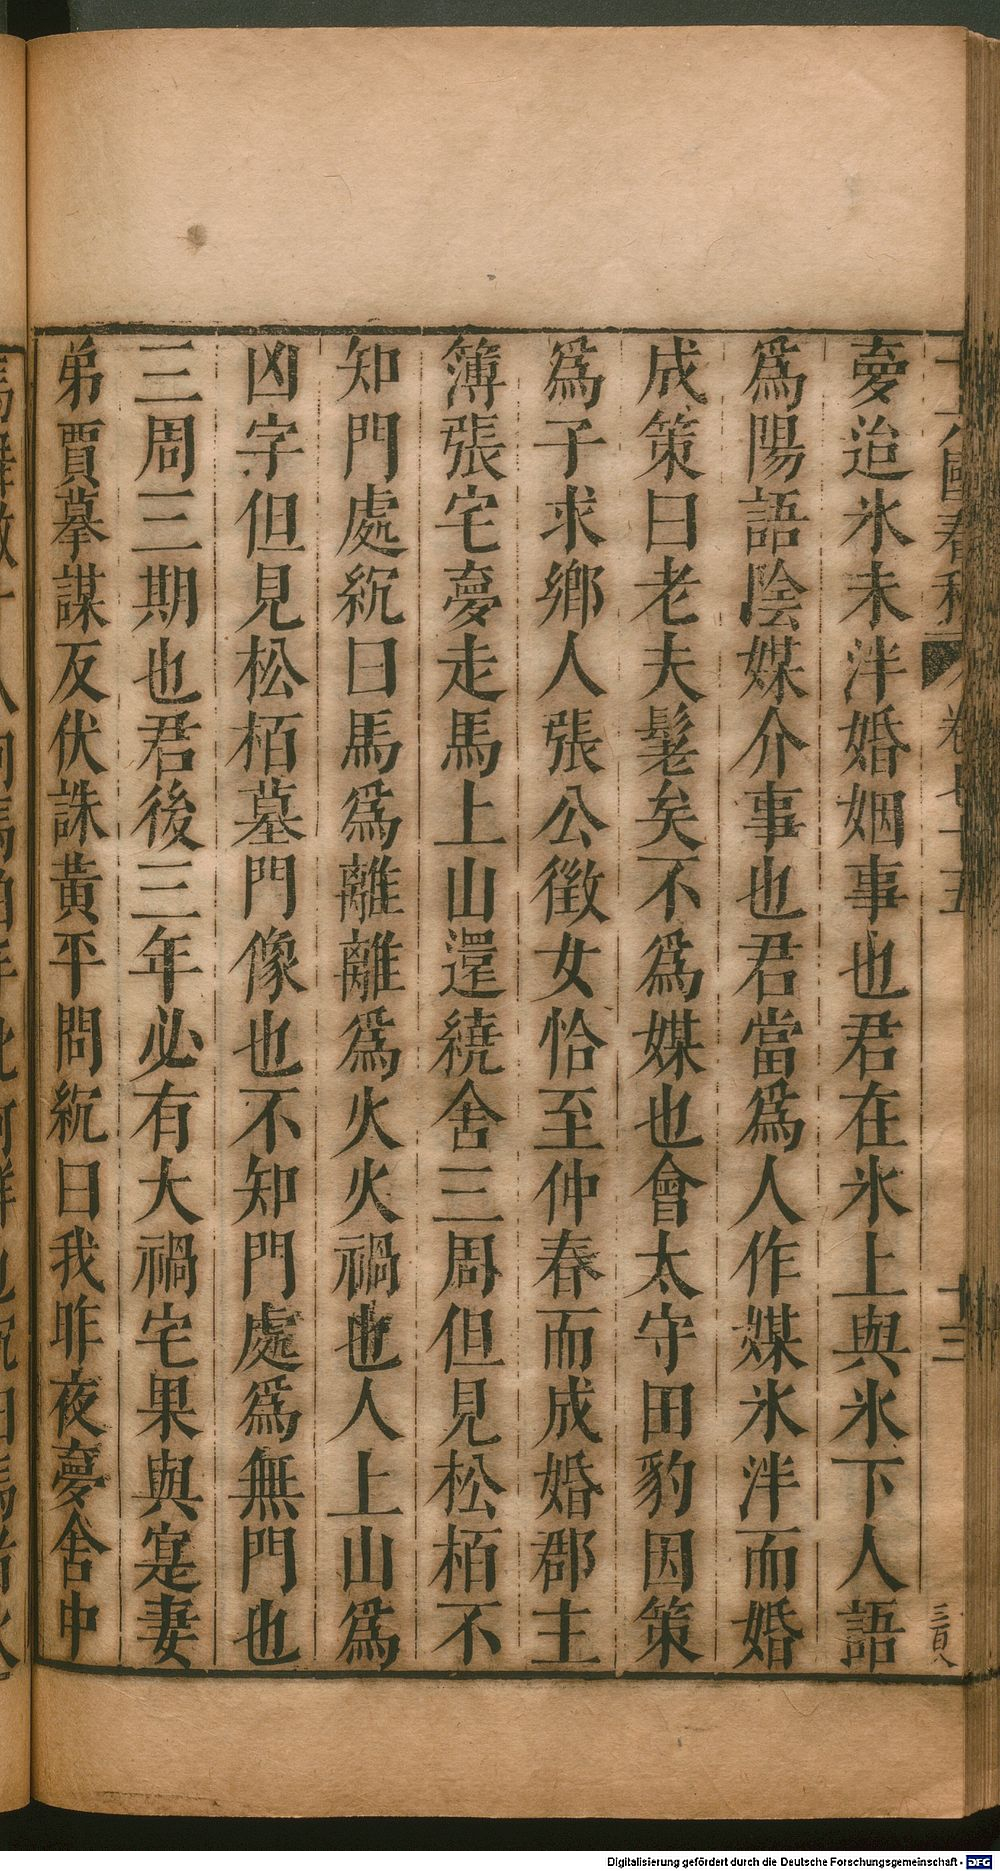 十六國春秋 卷七十五 十三
三百八
妻迨冰未泮婚姻事也君在冰上與冰下人語
爲陽語陰媒介事也君當爲人作媒冰泮而婚
成策曰老夫髦矣不爲媒也會太守田豹因策
爲子求鄉人張公徵女恰至仲春而成婚郡主
簿張宅夢走馬上山還繞舍三周但見松栢不
知門處紞曰馬爲離離爲火火禍也人上山爲
凶字但見松栢墓門像也不知門處爲無門也
三周三期也君後三年必有大禍宅果與寔妻
弟賈摹謀反伏誅黃平問紞曰我昨夜夢舍中
Digitalisierung gefördert durch die Deutsche Forschungsgemeinschaft - DFG